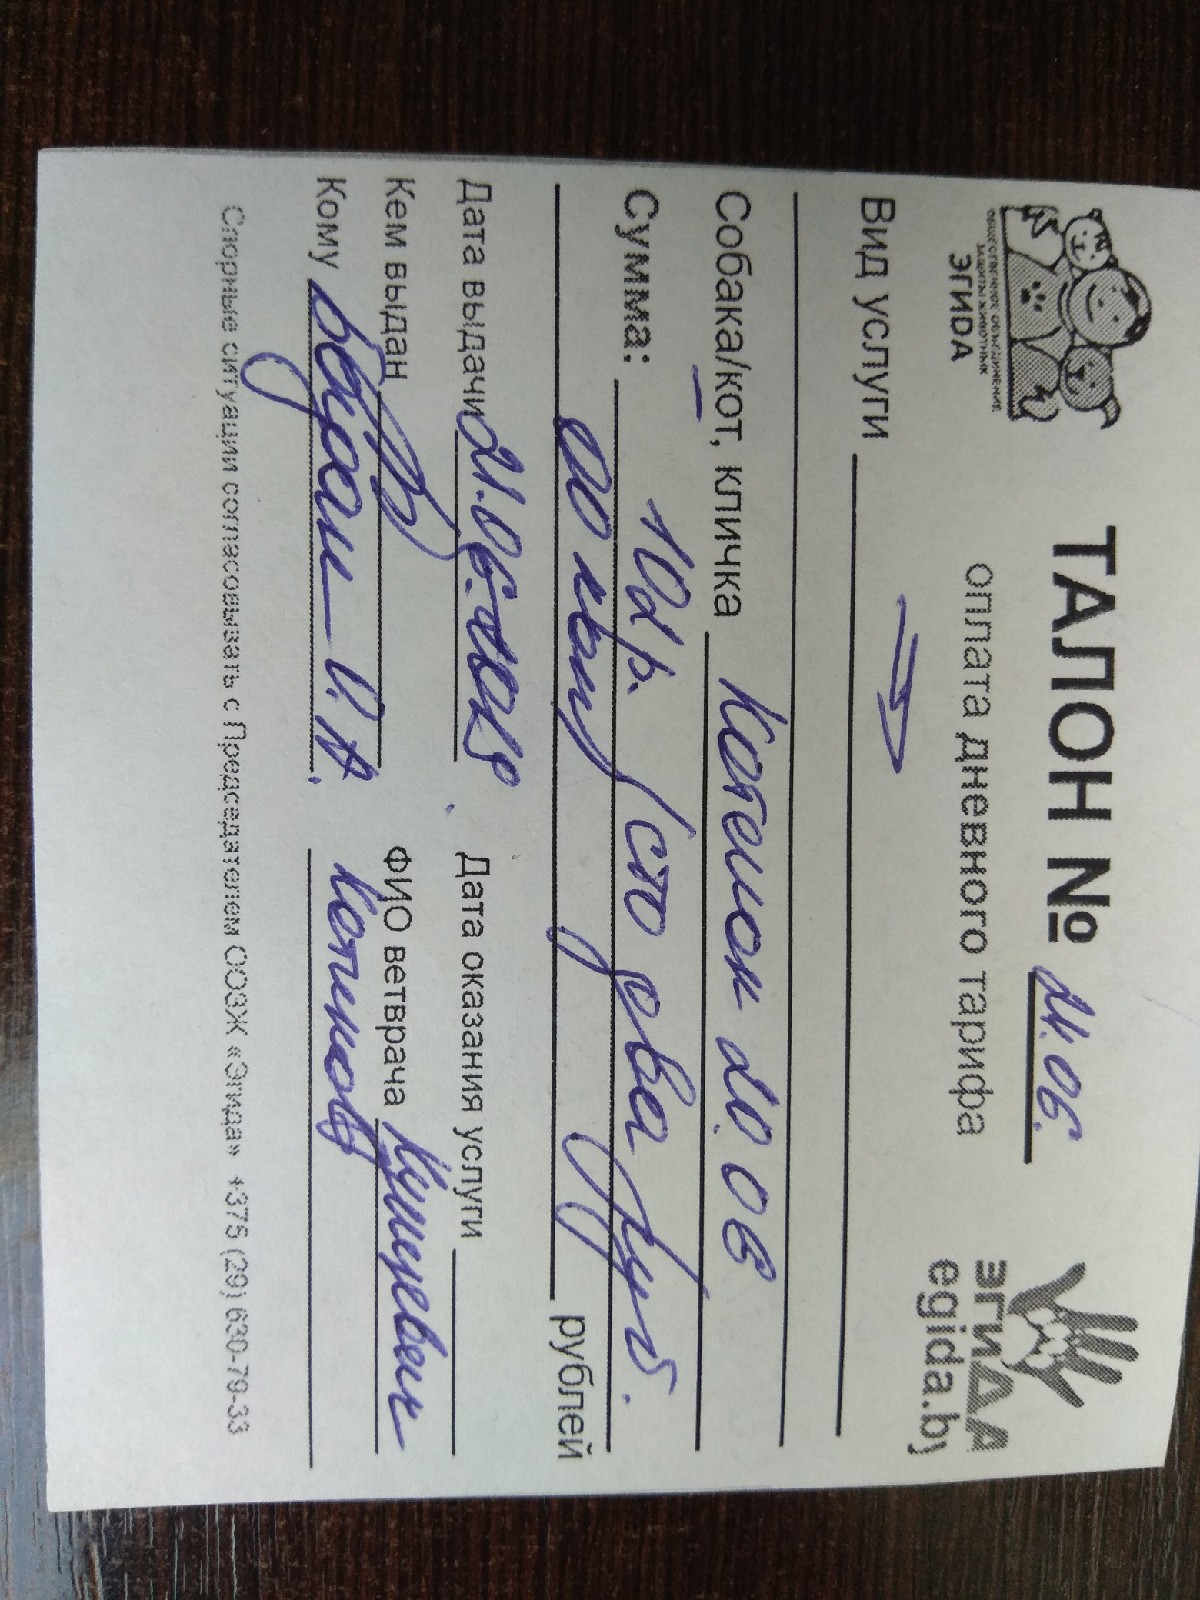 ТАЛОН № 21.06.
оплата дневного тарифа
ОБЩЕСТВЕННОЕ ОБЪЕДИНЕНИЕ
ЗАЩИТЫ ЖИВОТНЫХ
ЭГИДА
ЭГИДА
egida.by
Вид услуги
Собака/кот, кличка Котенок 20.06
Сумма: 102р. (сто два руб.
00 коп) рублей
Дата выдачи 21.06.2018 Дата оказания услуги
Кем выдан ФИО ветврача
Кому И.А.
Спорные ситуации согласовывать с Председателем ООЗЖ «Эгида» +375 (29) 630-79-33